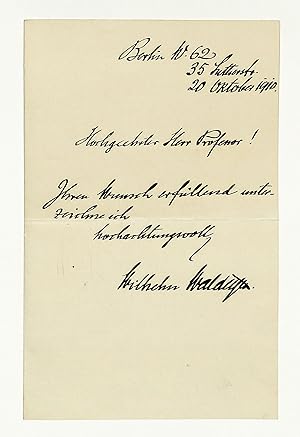 Berlin W. 62
35 Lutherstr.
20 Oktober 1910.
Hochgeehrter Herr Professor!
Ihren Wunsch erfüllend unter-
zeichne ich
hochachtungsvoll
Wilhelm Waldeyer.